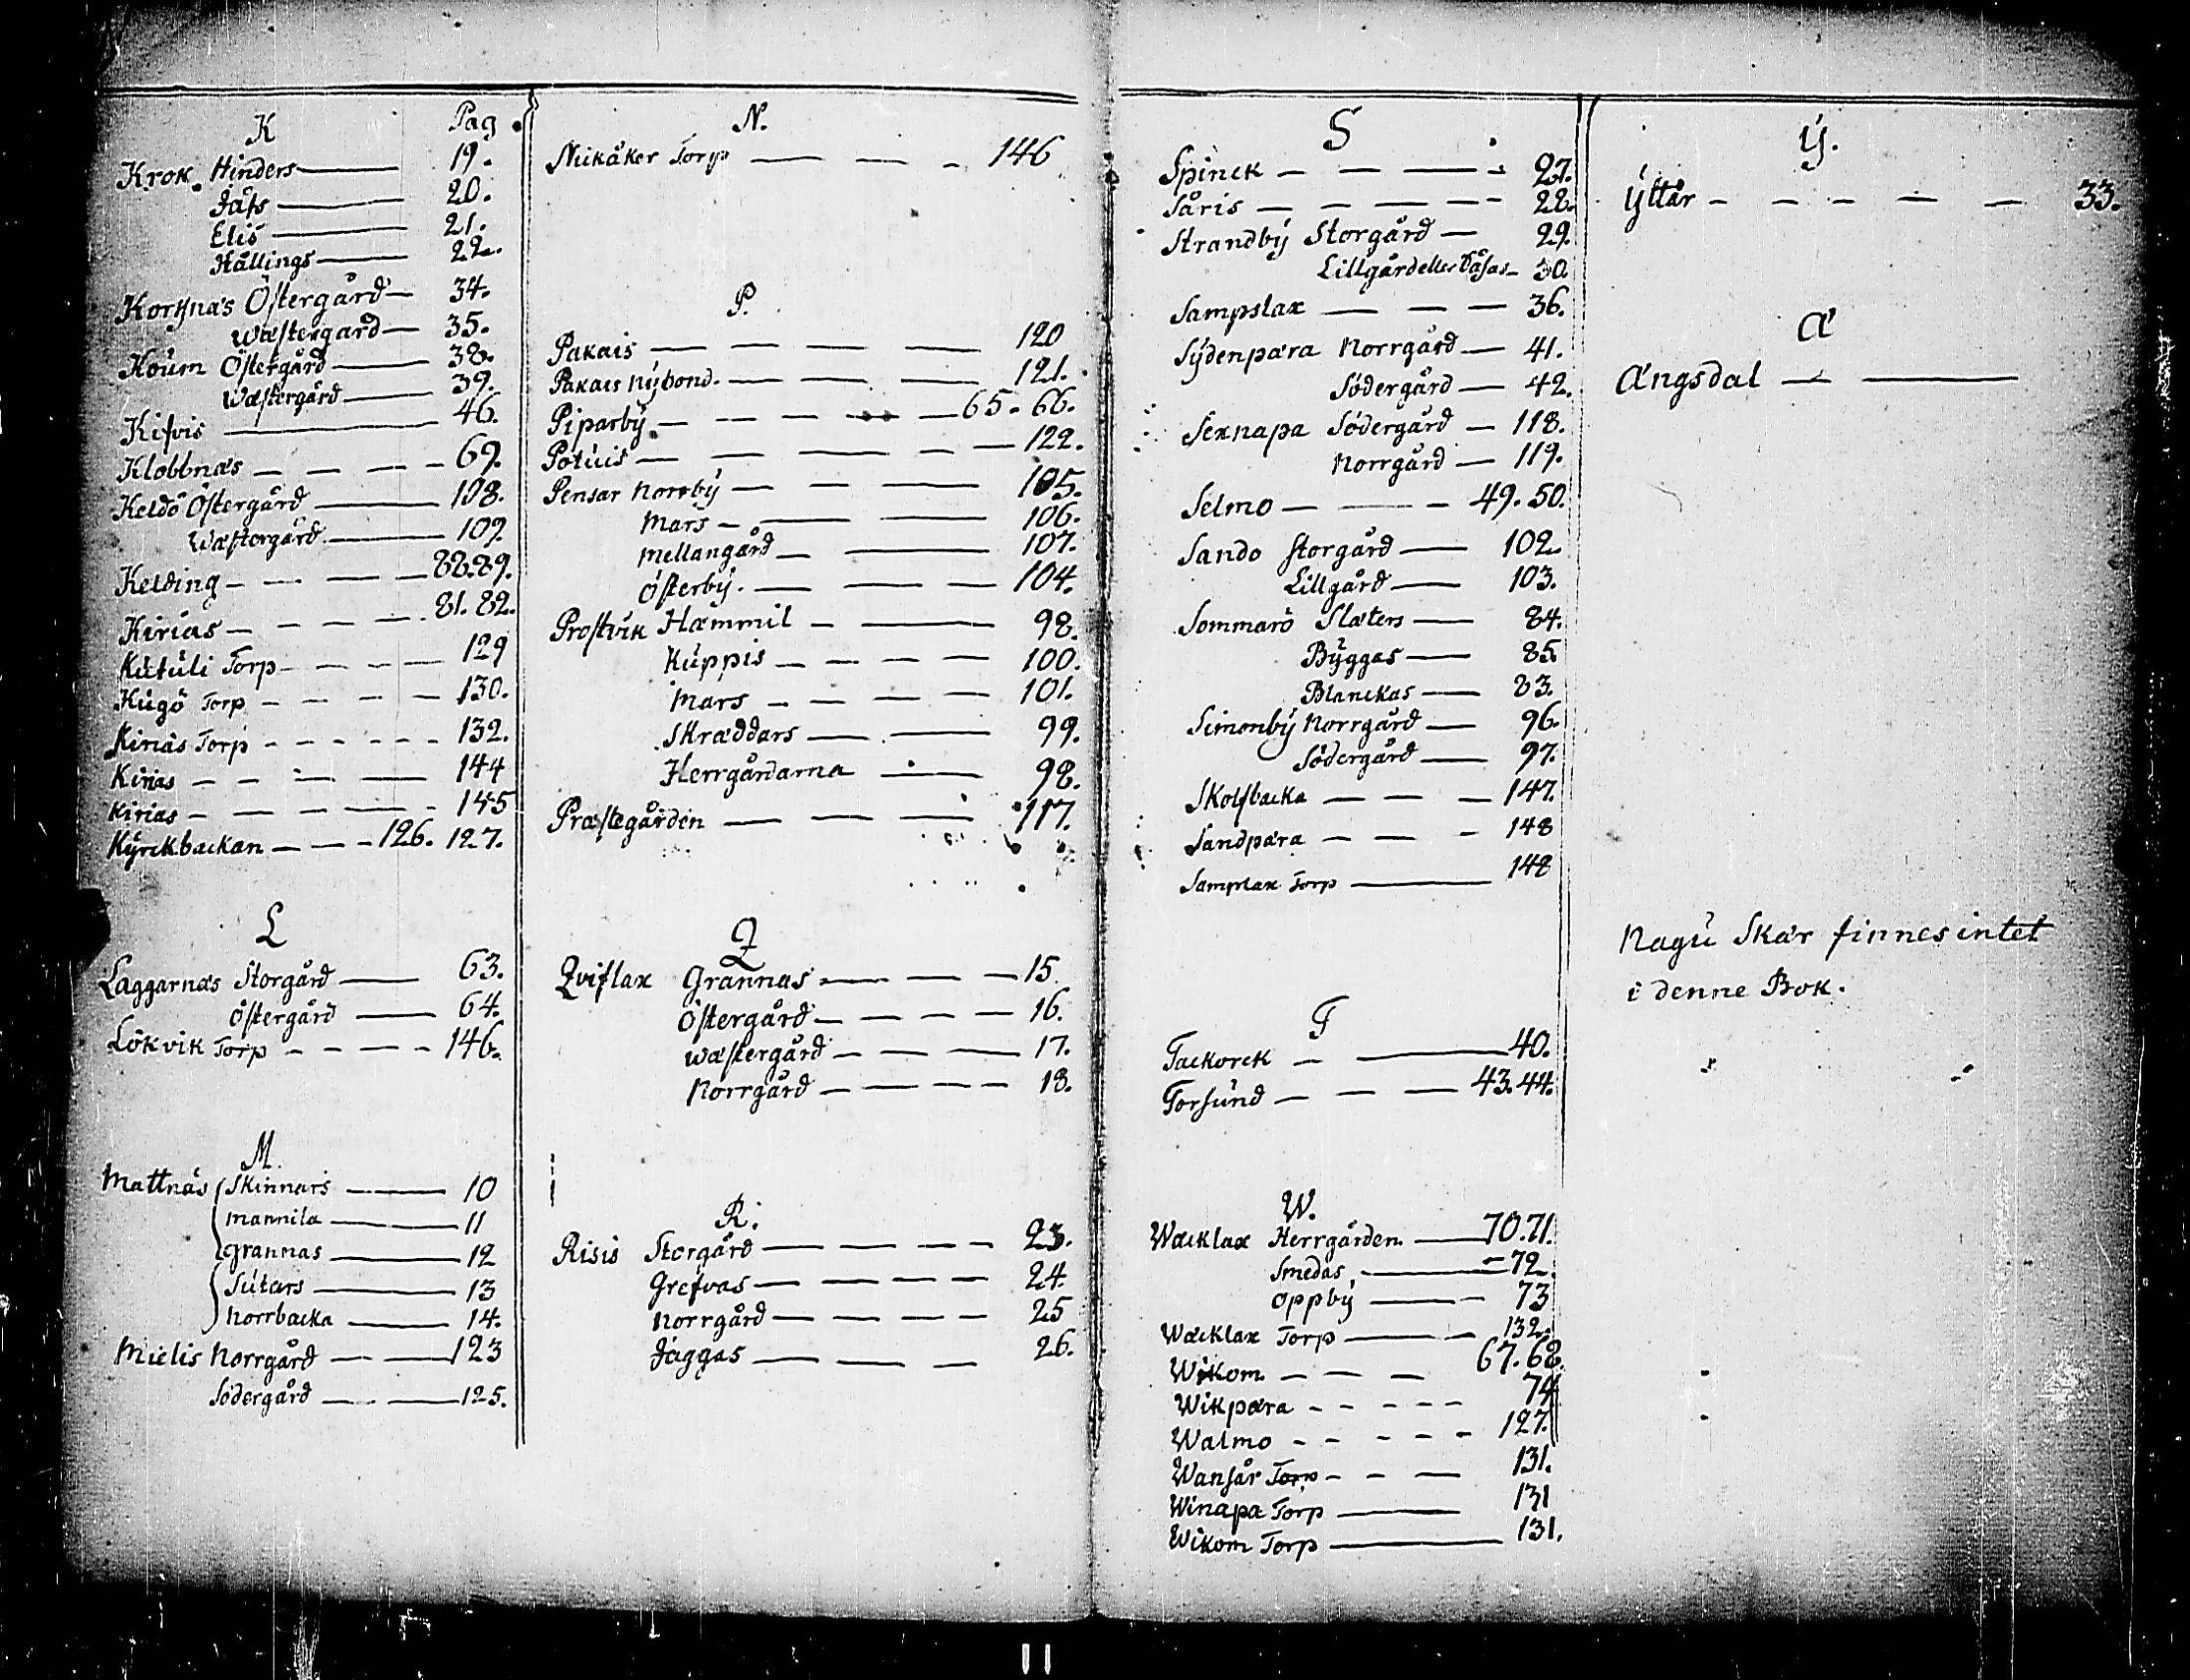 K Pag.
Krok. Hinders 19.
Jåfs 20.
Elis 21.
Hållings 22.
Korsnäs Östergård 34.
Wæstergard 35.
Koum Östergård 38.
Wæstergård 39.
Kifvis 46.
Klobbnäs 69.
Keldö Östergård 108.
Wæstergård 109
Kelding 88.89.
Kirias 81.82.
Kutuli Torp 129
Kugö Torp 130.
Kinäs Torp 132.
Kirias 144
Kirias 145
Kÿrckbackan 126. 127.
L
Laggarnäs Storgård 63.
Östergård 64.
Lökvik Torp 146.
M.
Mattnäs Skinnars 10
Mannila 11
Grannas 12
Sutars 13
Norrbacka 14.
Mielis Norrgård 123
Södergård 125.
N.
Nukåker Torp 146
P.
Pakais 120
Pakais nÿbond. 121.
Piparbÿ 65. 66.
Potuis 122.
Pensar Norrbÿ 105.
Mars 106.
Mellangård 107.
Österbÿ 104.
Prostvik Hæmmil 98.
Kuppis 100.
Mars 101.
Skræddars 99.
Herrgårdarna 98.
Præstegården 117.
Q
Qviflax Grannas 15
Östergård 16.
Wæstergård 17.
Norrgård 18.
R.
Risis Storgård 23.
Grefvas 24.
Norrgård 25
Jäggas 26.
S
Spinck 27.
Såris 28.
Strandbÿ Storgård 29.
Lillgård eller Dåsas 30.
Sampslax 36.
Sÿdenpæra Norrgård 41.
Södergård 42.
Sexnapa Södergård 118.
Norrgård 119.
Selmo 49. 50.
Sando Storgård 102.
Lillgård 103.
Sommarö Slæters 84.
Bÿggas 85.
Blanckas 83.
Simonbÿ Norrgård 96.
Södergård 97.
Skolfbacka 147.
Sandpæra 148
Samplax Torp 148
T
Tackorck 40.
Torsund 43.44.
W.
Wæcklax Herrgården 70.71.
Smedas 72.
Oppbÿ 73
Wæcklax Torp 132.
Wikom 67.68.
Wikpæra 74
Walmo 127.
Wansår Torp 131.
Winapa Torp 131
Wikom Torp 131.
Ÿ.
Ÿttår 33.
Æ
Ængsdal
Nagu Skär finnes intet
i denne Bok.